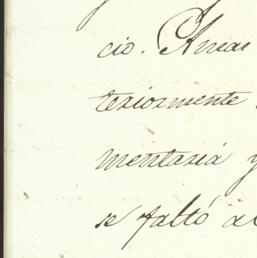 cio. Amas
teriormente
mentaria y
se faltó al